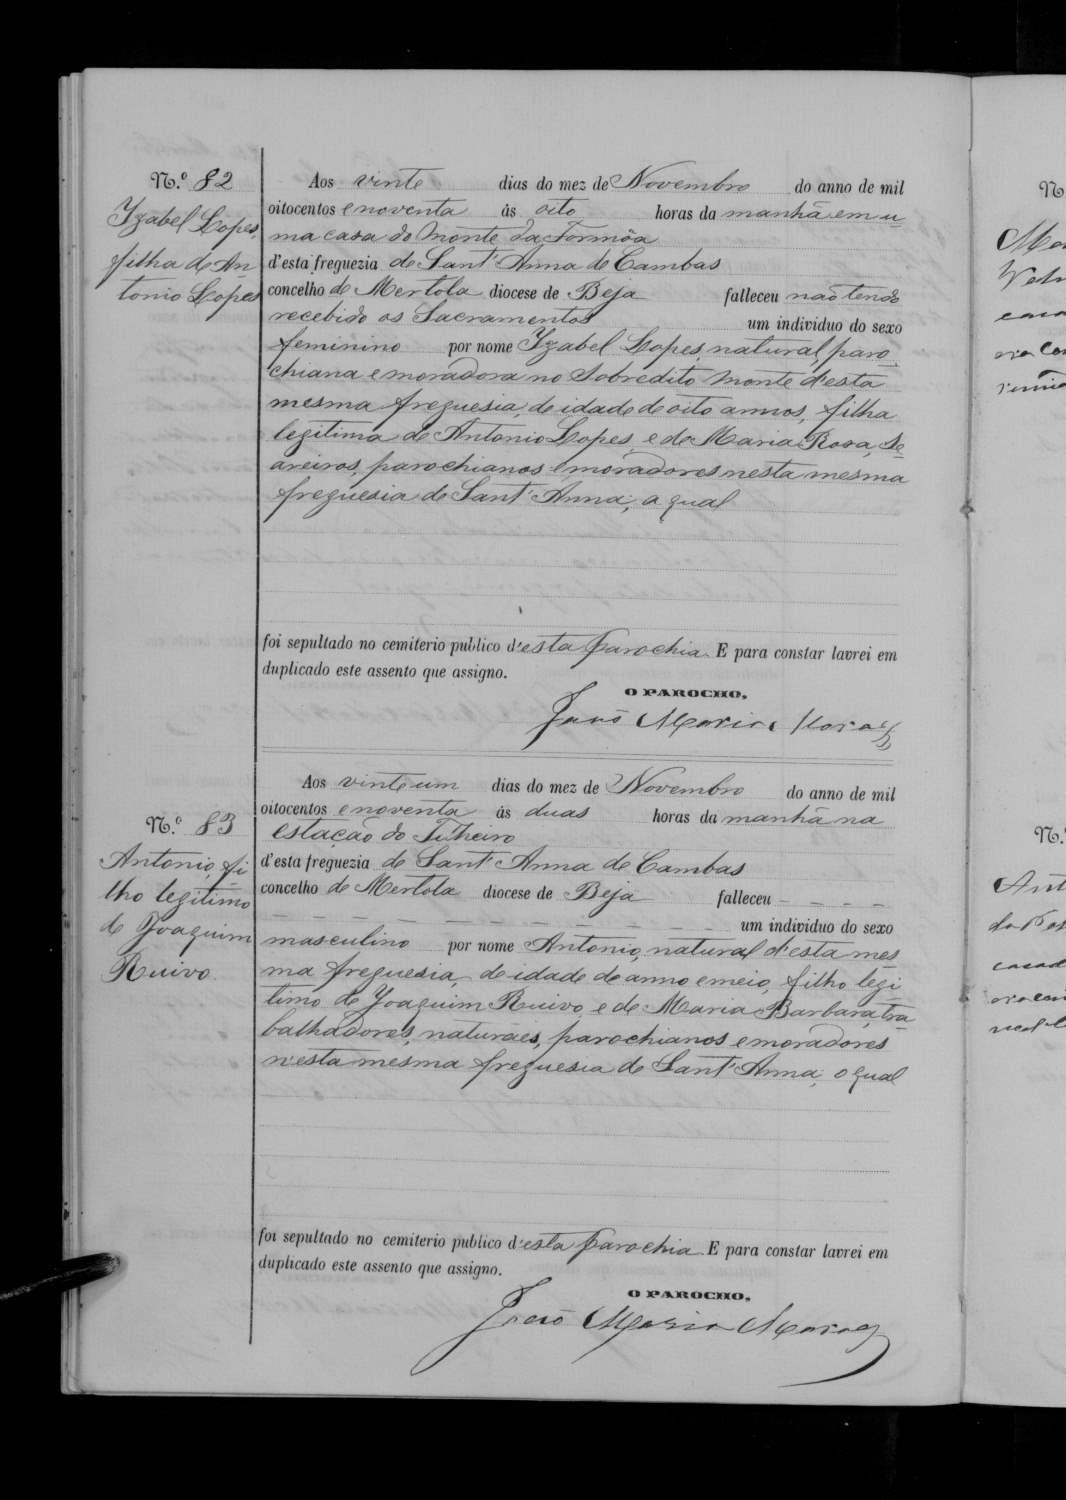 N.º 82
Yzabel Lopes,
filha de An
tonio Lopes
Aos vinte dias do mez de Novembro do anno de mil
oitocentos e noventa ás oito horas da manhã em u
ma casa do Monte da Formôa
d'esta freguezia de Sant'Anna de Cambas
concelho de Mertola diocese de Beja falleceu não tendo
recebido os Sacramentos um individuo do sexo
feminino por nome Yzabel Lopes, natural, paro
chiana e moradora no sobredito Monte d'esta
mesma freguesia, de idade de oito annos, filha
legitima de Antonio Lopes, e de Maria Rosa, se
areiros, parochianos e moradores nesta mesma
freguesia de Sant'Anna; a qual
foi sepultado no cemiterio publico d'esta parochia. E para constar lavrei em
duplicado este assento que assigno.
O PAROCHO,
João Maria
N.º 83
Antonio, fi
lho legitimo
de Joaquim
Ruivo.
Aos vinte um dias do mez de Novembro do anno de mil
oitocentos e noventa ás duas horas da manhã na
estação do
d'esta freguezia de Sant'Anna de Cambas
concelho de Mertola diocese de Beja falleceu
um individuo do sexo
masculino por nome Antonio, natural d'esta mes
ma freguesia, de idade de anno e meio, filho legi
timo de Joaquim Ruivo, e de Maria Barbara, tra
balhadores, naturaes, parochianos e moradores
nesta mesma freguesia de Sant'Anna; o qual
foi sepultado no cemiterio publico d'esta parochia. E para constar lavrei em
duplicado este assento que assigno.
O PAROCHO,
João Maria